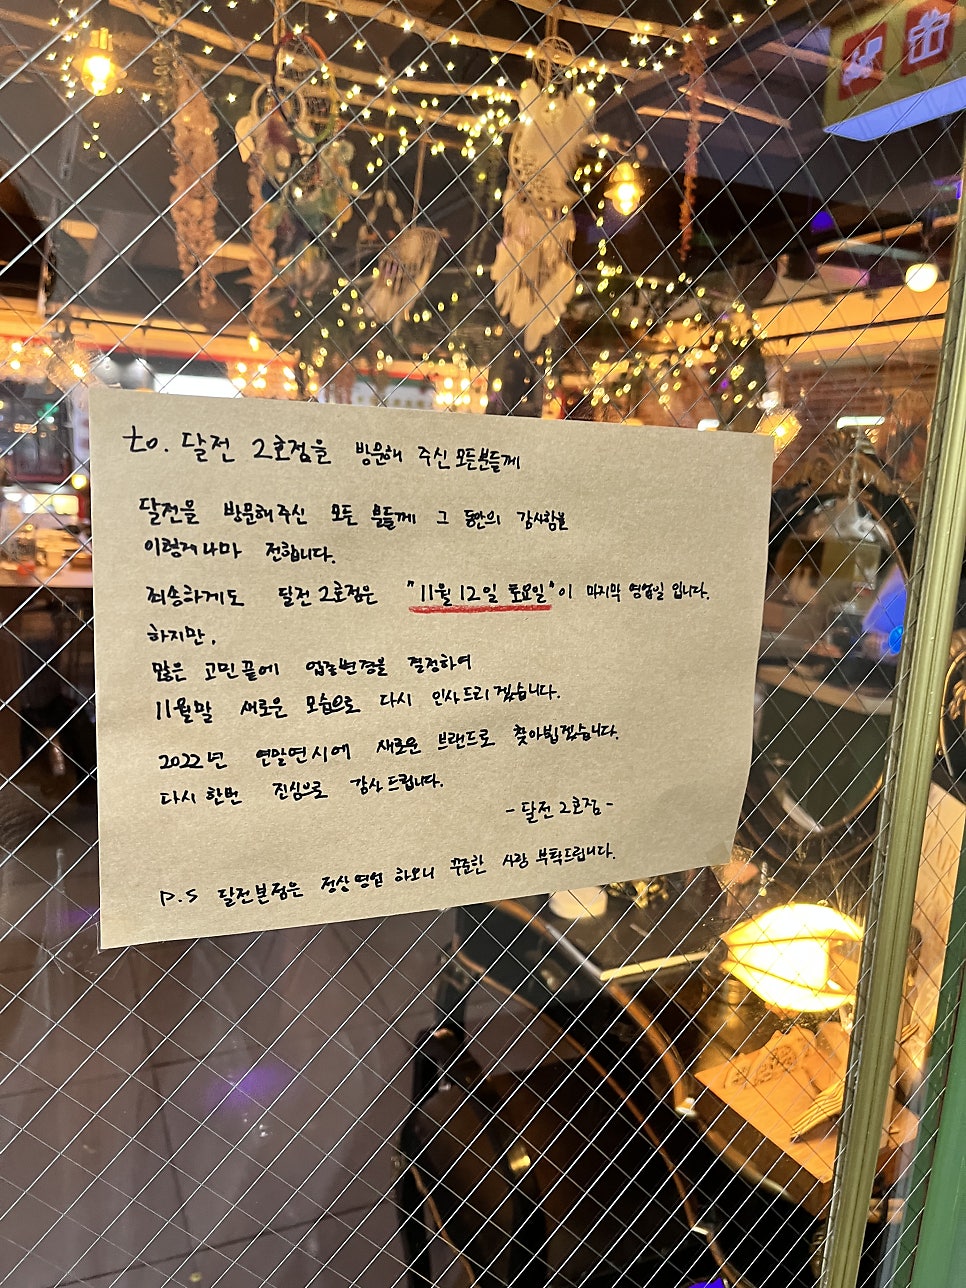 to. 달전 2호점을 방문해 주신 모든분들께
달전을 방문해주신 모든 분들께 그 동안의 감사함을
이렇게나마 전합니다.
죄송하게도 달전 2호점은 "11월 12일 토요일"이 마지막 영업일 입니다.
하지만,
많은 고민끝에 업종변경을 결정하여
11월말 새로운 모습으로 다시 인사드리겠습니다.
2022년 연말연시에 새로운 브랜드로 찾아뵙겠습니다.
다시한번 진심으로 감사드립니다.
- 달전 2호점 -
P.S 달전본점은 정상영업 하오니 꾸준한 사랑 부탁드립니다.